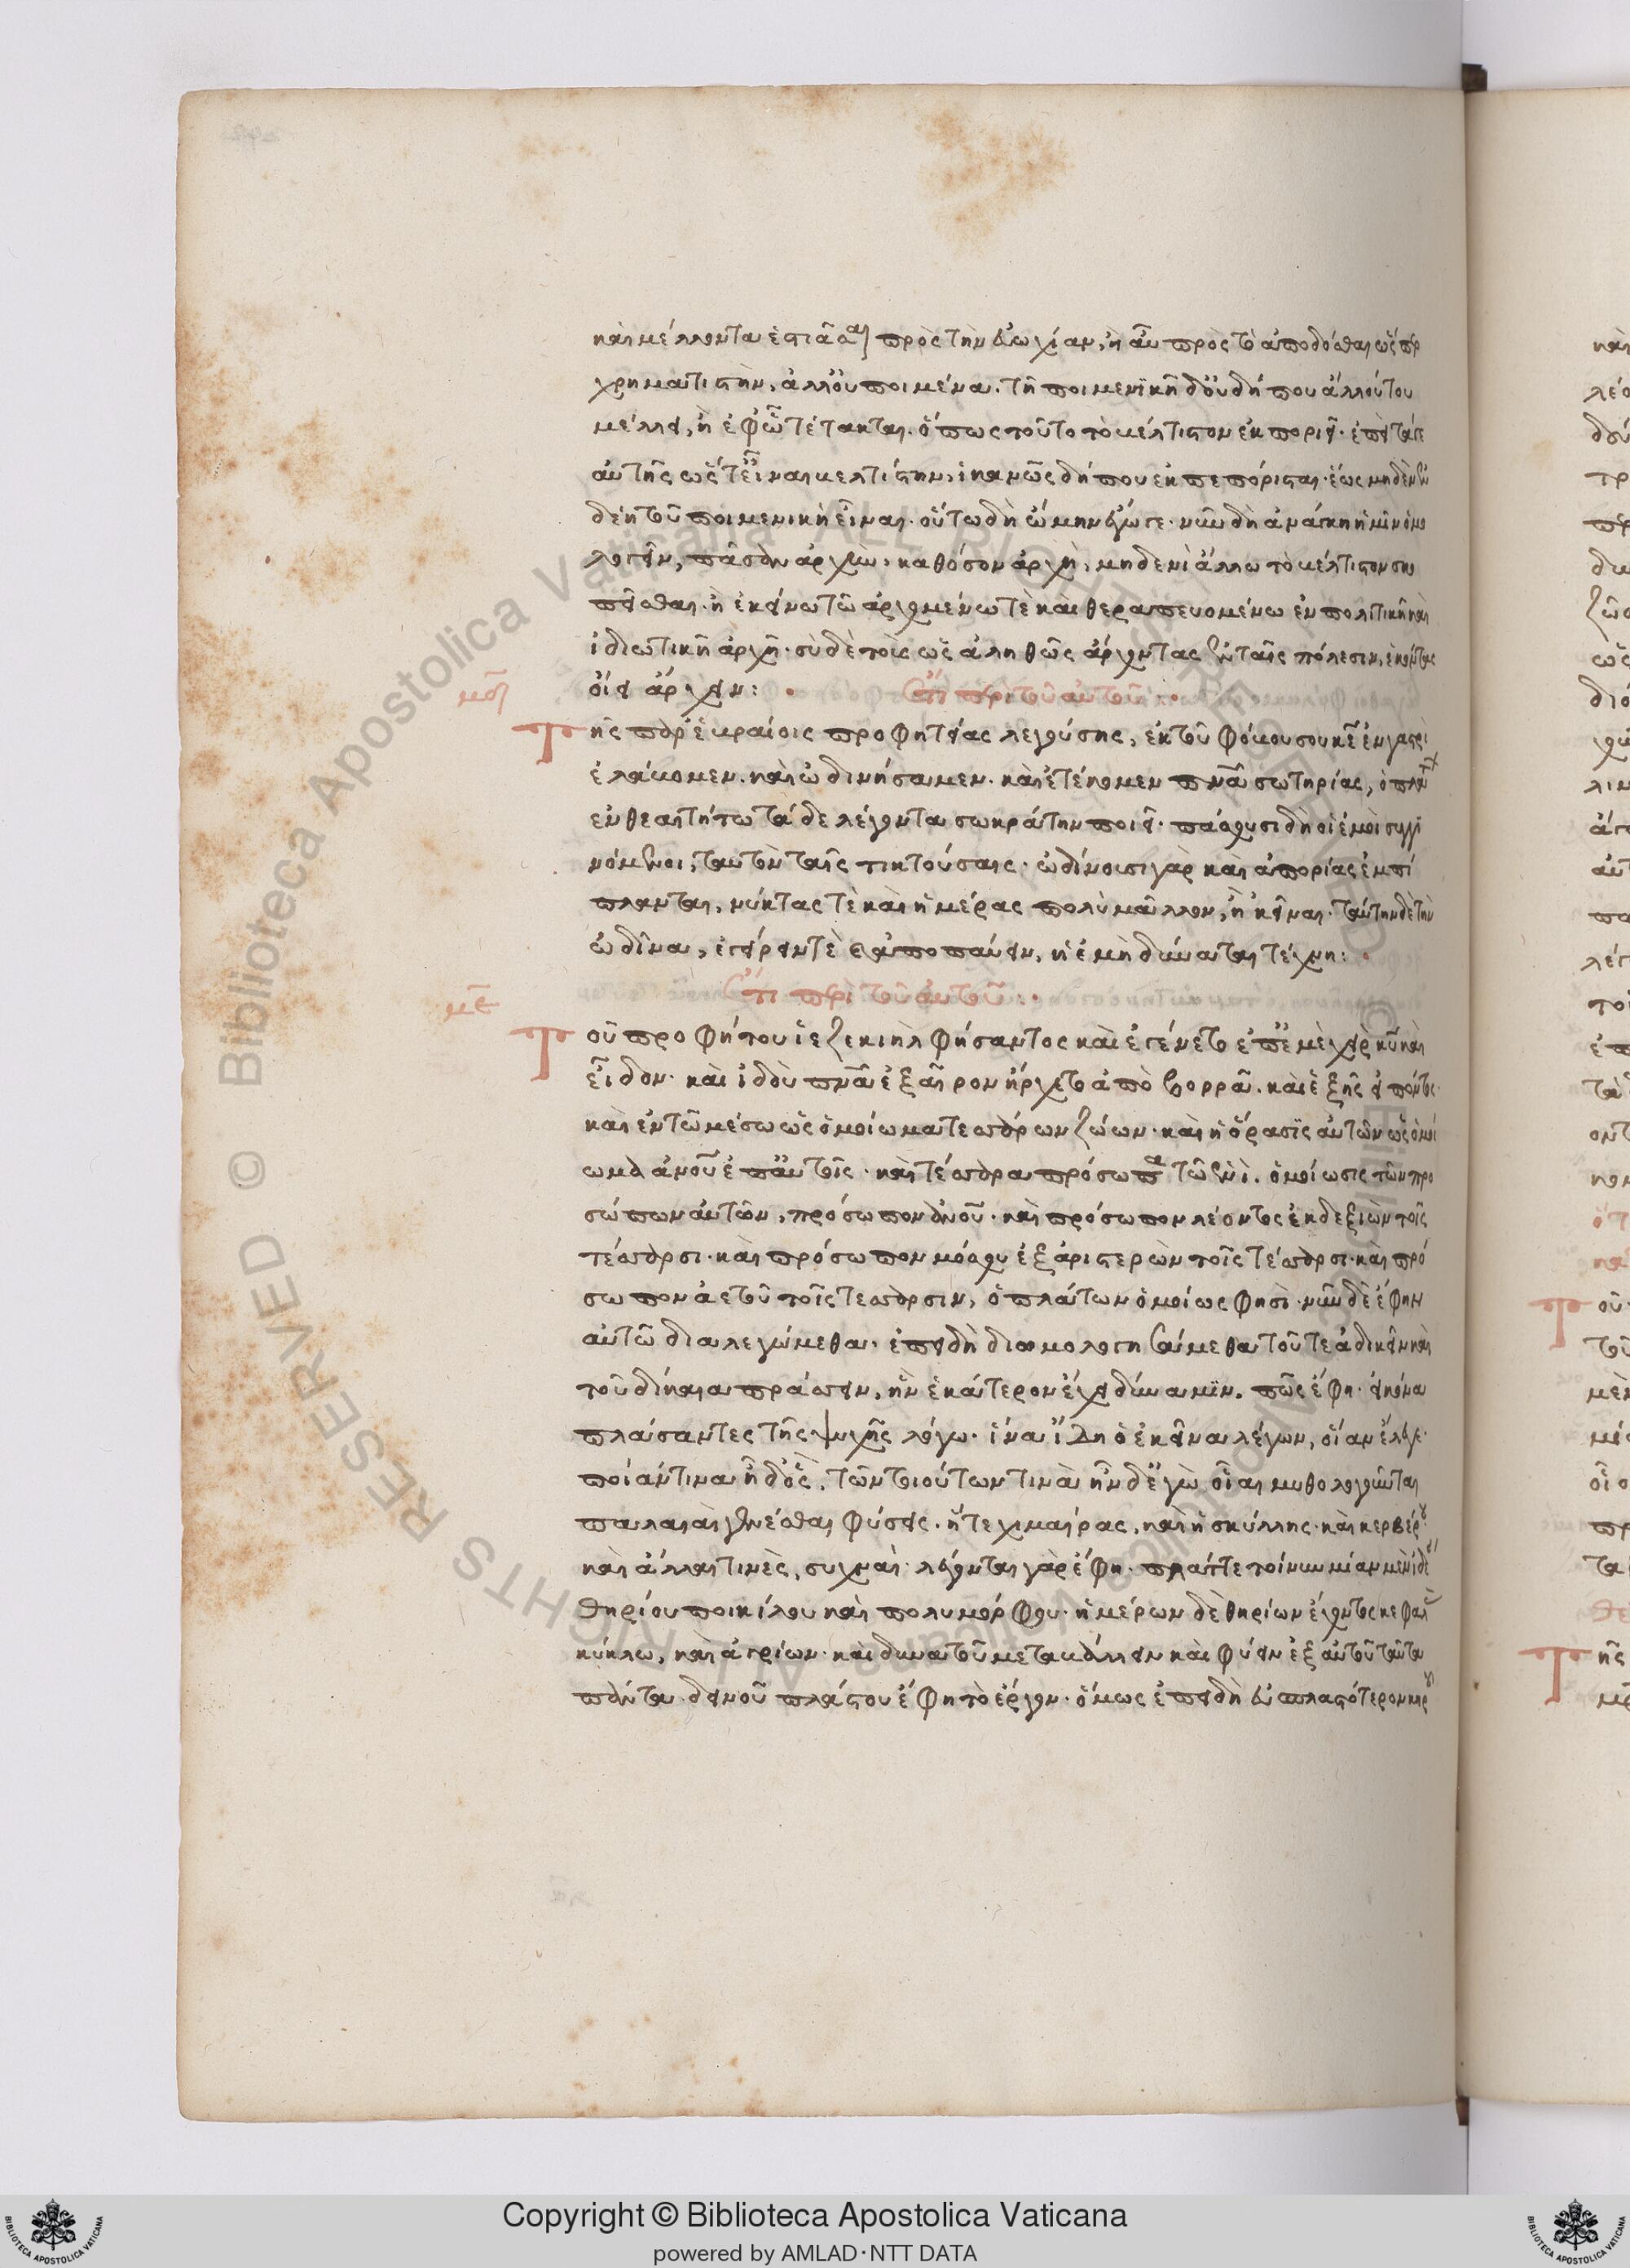 καὶ μέλλοντα ἑστιάσεσθαι πρὸς τὴν εὐωχίαν, ἢ αὖ πρὸς τὸ ἀποδόσθαι ὥσπερ
χρηματιστὴν, ἀλλ' οὐ ποιμένα. τῆ ποιμενικῆ δ' οὐ δή που ἄλλου του
μέλει, ἢ ἐφ' ὧ τέτακται. ὅπως τοῦτο τὸ βέλτιστον ἐκποριεῖ. ἐπεὶ τάγε
αὐτῆς ὥστ' εἶναι βελτίστην, ἱκανῶς δήπου ἐκπεπόρισται. ἕως μηδὲν ἐν
δέη τοῦ ποιμενικὴ εἶναι. οὕτω δὴ ὤμην ἔγωγε. νῦν δὴ ἀνάγκη ἡμῖν ὁμο
λογεῖν, πᾶσαν ἀρχὴν. καθόσον ἀρχὴ, μηδενὶ ἄλλω τὸ βέλτιστον σκο
πεῖσθαι. ἢ ἐκείνω τῶ ἀρχομένω τὲ καὶ θεραπευομένω ἐν πολιτικῆ καὶ
ἰδιωτικῆ ἀρχῆ. σὺ δὲ τοὺς ὡς ἀληθῶς ἄρχοντας ἐν ταῖς πόλεσιν, ἑκόντας
οἴει ἄρχειν:
ἔτι περὶ τοῦ αὐτοῦ
Τῆς παρ' ἑβραίοις προφητείας λεγούσης, ἐκ τοῦ φόβου σου κε ἐν γαστρὶ
ἐλάβομεν. καὶ ὠδινήσαμεν. καὶ ἐτέκομεν πνα σωτηρίας, ὁ πλάτ
ἐν θεαιτήτω τάδε λέγοντα σωκράτην ποιεῖ. πάσχουσι δὴ οἱ ἐμοὶ συγγι
νόμενοι, ταυτὸν ταῖς τικτούσαις. ὠδίνουσι γὰρ καὶ ἀπορίας ἐμπί
πλανται, νύκτας τὲ καὶ ἡμέρας πολὺ μᾶλλον, ἢ ἐκεῖναι. ταύτην δὲ τὴν
ὠδῖνα, ἐγείρειν τὲ καὶ ἀποπαύειν, ἡ ἐμὴ δύναται τέχνη:
ἔτι περὶ τοῦ αὐτοῦ:
με
Τοῦ προφήτου ἰεζεκιὴλ φήσαντος καὶ ἐγένετο ἐπ' ἐμὲ χεὶρ κυ καὶ
εἶδον. καὶ ἰδοὺ πνα ἐξαῖρον ἤρχετο ἀπὸ βορρᾶ. καὶ ἑξῆς εἰπόντος
καὶ ἐν τῶ μέσω ὡς ὁμοίωμα τεσσάρων ζώων. καὶ ἡ ὅρασις αὐτῶν ὡς ὁμοί
ωμα ἀνου ἐπ' αὐτοῖς. καὶ τέσσαρα πρόσωπα τῶ ἑνὶ. ὁμοίωσις τῶν προ
σώπων αὐτῶν, πρόσωπον ἀνου. καὶ πρόσωπον λέοντος ἐκ δεξιῶν τοῖς
τέσσαρσι. καὶ πρόσωπον μόσχου ἐξ ἀριστερῶν τοῖς τέσσαρσι. καὶ πρό
σωπον ἀετοῦ τοῖς τέσσαρσιν, ὁ πλάτων ὁμοίως φησὶ. νῦν δὲ ἔφην
αὐτῶ διαλεγώμεθα. ἐπειδὴ διωμολογησάμεθα τοῦ τε ἀδικεῖν καὶ
τοῦ δίκαια πράσσειν, ἣν ἑκάτερον ἔχει δύναμιν. πῶς ἔφη. εἰκόνα
πλάσαντες τῆς ψυχῆς λόγω. ἵνα ἴδη ὁ ἐκεῖνα λέγων, οἷα ἔλεγε.
ποίαν τινα ἦ δ' ὅς. τῶν τοιούτων τινὰ ἦν δ' ἐγὼ οἷαι μυθολογοῦνται
παλαιαὶ γενέσθαι φύσεις. ἥ τε χιμαίρας, καὶ ἡ σκύλλης. καὶ κερβέρου
καὶ ἄλλαι τινὲς, συχναὶ. λέγονται γὰρ ἔφη. πλάττε τοίνυν μίαν μὲν ἰδέ
θηρίου ποικίλου καὶ πολυμόρφου. ἡμέρων δὲ θηρίων ἔχοντος κεφαλ
κύκλω, καὶ ἀγρίων. καὶ δυνατοῦ μεταβάλλειν καὶ φύειν ἐξ αὐτοῦ ταῦτα
πάντα. δεινοῦ πλάστου ἔφη τὸ ἔργον. ὅμως ἐπειδὴ εὐπλαστότερον κηρ